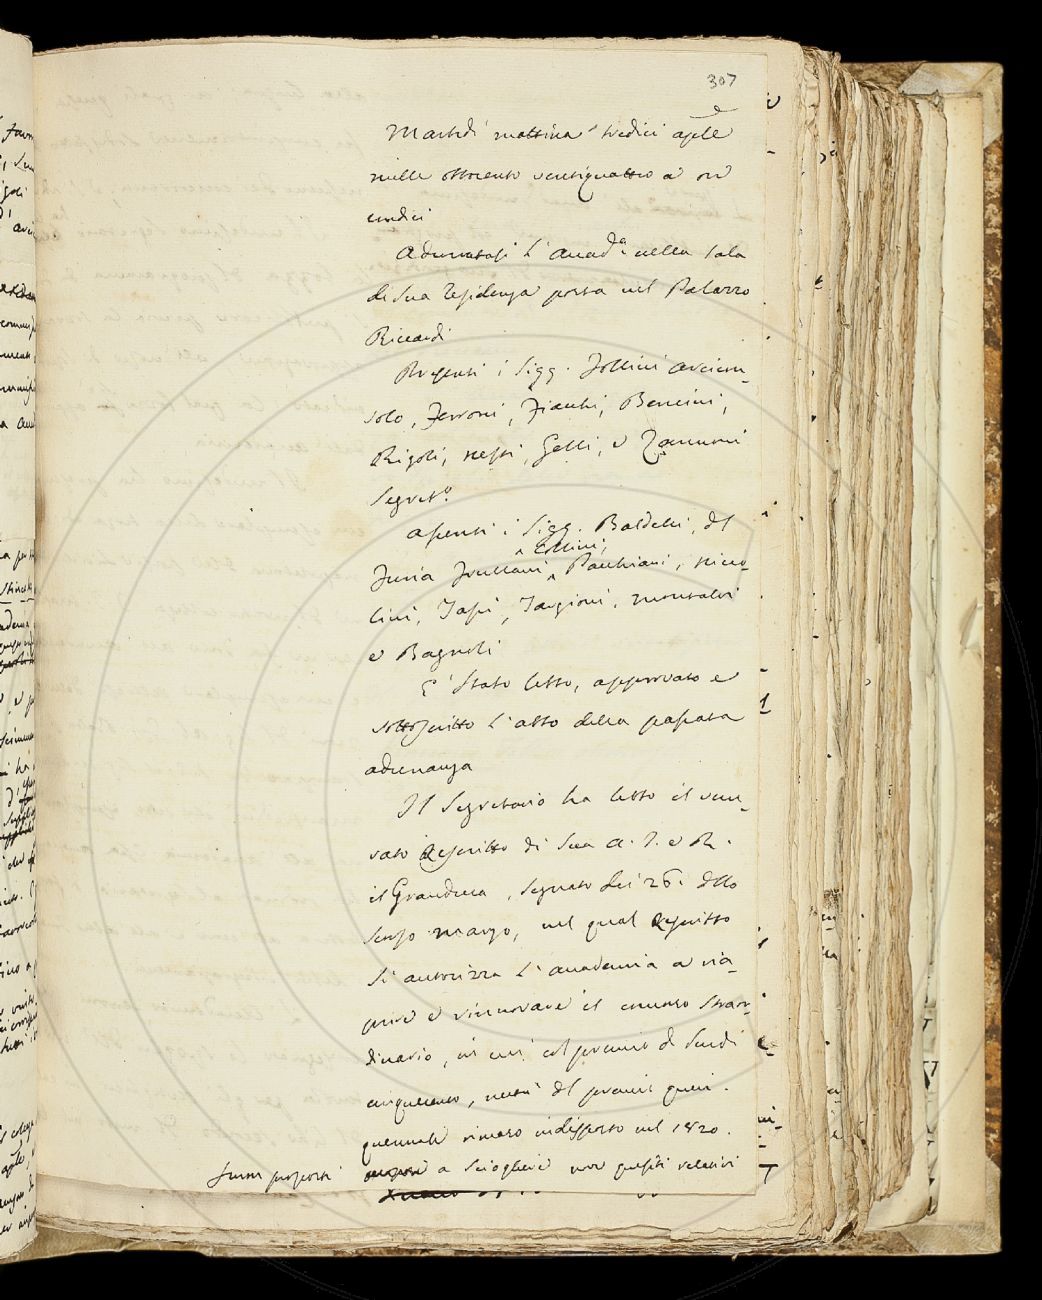 307
Martedì mattina tredici aple
mille ottocento ventiquattro a ore
undici
Adunatasi l'Accad.a nella sala
di Sua Residenza posta nel Palazzo
Riccardi
Presenti i Sigg. Follini Arcicon-
solo, Ferroni, Fiacchi, Bencini,
Rigoli, Nesti, Gelli, e Zannoni
Segret.o
Assenti i Sigg. Baldelli, del
Furia Frullani, Collini, Pacchiani, Nicco-
lini, Tassi, Targioni, Montalvi
e Bagnoli
E' stato letto, approvato e
sottoscritto l'atto della passata
adunanza
Il Segretario ha letto il vene-
rato Rescritto di Sua A. I. e R.
il Granduca, segnato dei 26. dello
scorso Marzo, nel qual Rescritto
si autorizza l'Accademia a ria-
prire e rinnovare il concorso straor-
dinario, in cui col premio di Scudi
cinquecento, metà del premio quin-
quennale rimaso indisposto nel 1820.
a sciogliere quesiti relativi
furon proposti